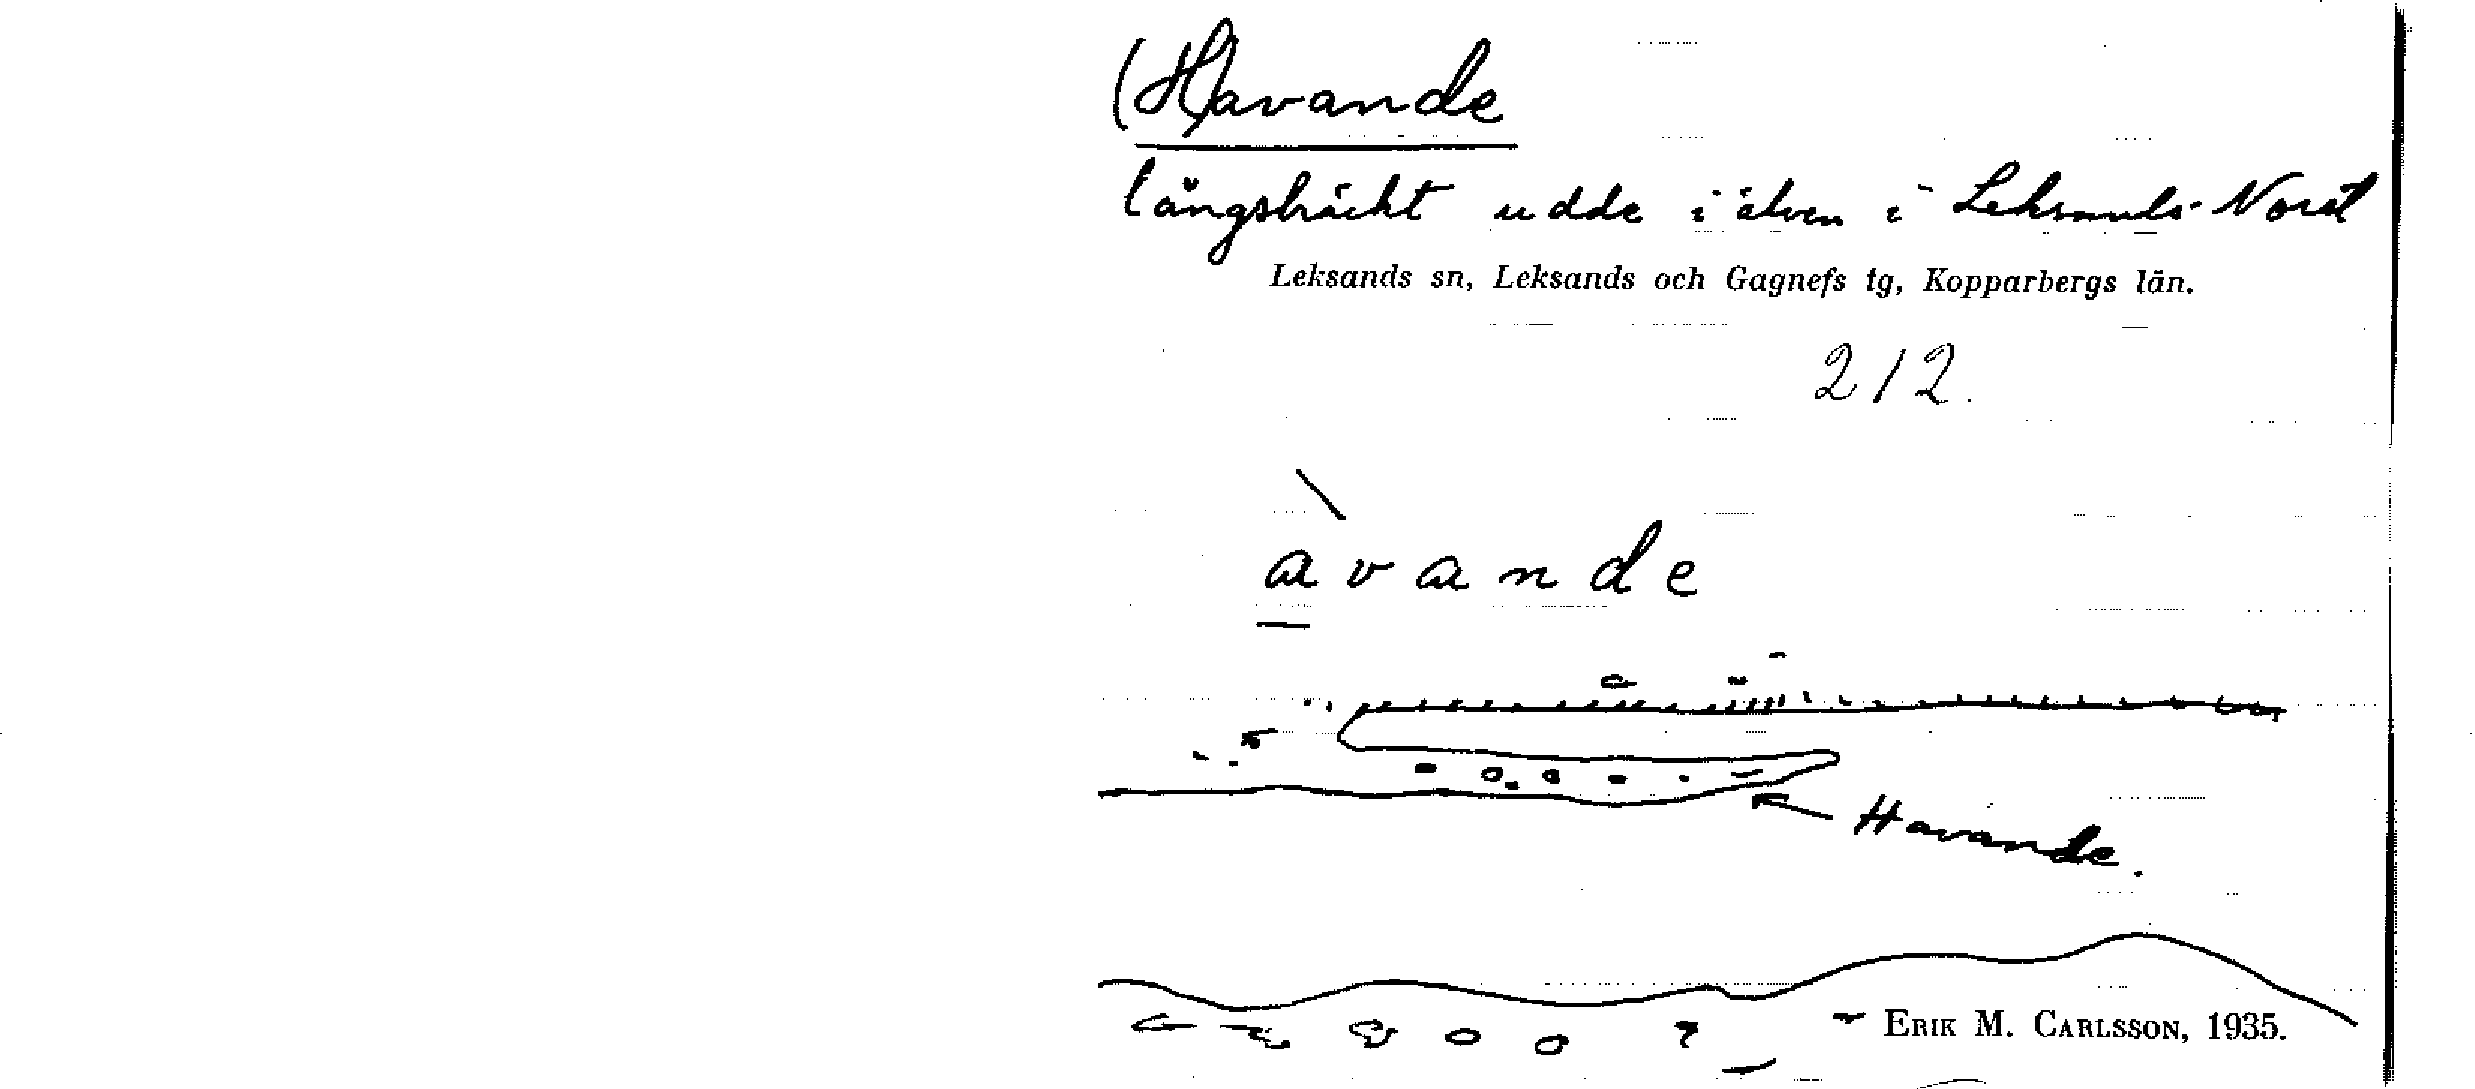 (H)avande
långsträckt udde i älven i Leksands-Noret
Leksands sn, Leksands och Gagnefs tg, Kopparbergs län.
212.
avande
Havande.
ERIK M. CARLSSON, 1935.